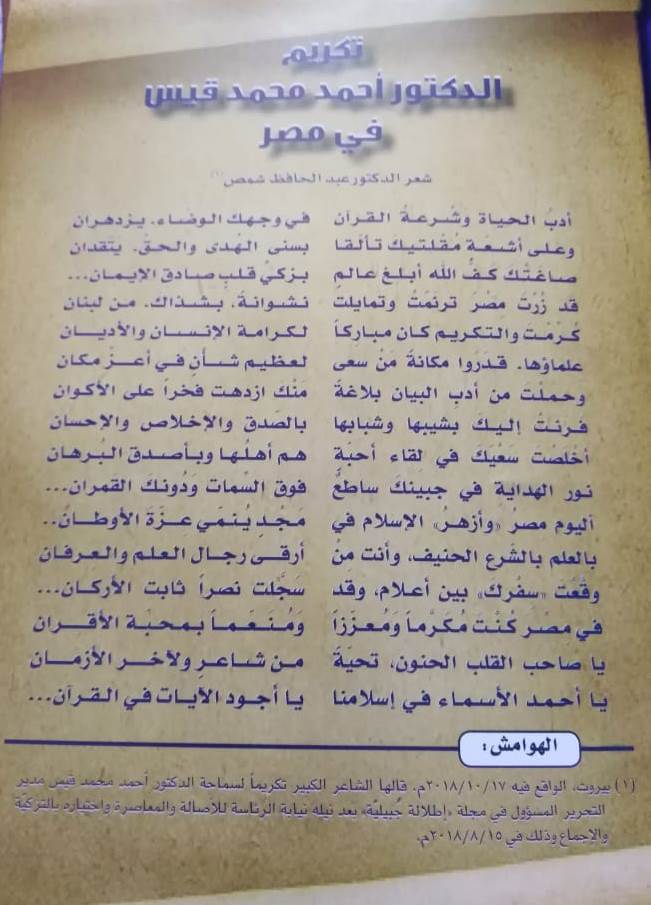 تكريم
الدكتور أحمد محمد قيس
في مصر
شعر الدكتور عبد الحافظ شمص(١)
أدبُ الحياة وشُرعةُ القرآن في وجهكَ الوضاء، يزدهران
وعلى أشعّة مُقلتيك تألّقا بسنى الهدى والحقّ، يتّقدان
صاغتْك كفُّ الله أبلغ عالمٍ بزكيّ قلبٍ صادق الإيمان...
قد زُرْت مصْر ترنمتْ وتمايلت نشوانةً، بشذاك، من لبنان
كُرّمْت والتكريم كان مباركاً لكرامة الإنسان والأديان
علماؤها، قدّروا مكانة منْ سعى لعظيم شأنٍ في أعزّ مكان
وحملْت من أدب البيان بلاغةً منْك ازدهت فخراً على الأكوان
فرنتْ إليك بشيبها وشبابها بالصّدق والإخلاص والإحسان
أخلصْت سعْيك في لقاء أحبةٍ هم أهلُها وبأصدق البُرهان
نور الهداية في جبينك ساطعٌ فوق السّمات ودُونك القمران...
أليوم مصرُ «وأزهرُ» الإسلام في مجْدٍ يُنمّي عزّة الأوطان..
بالعلم بالشرع الحنيف، وأنت منْ أرقى رجال العلم والعرفان
وقّعْت «سفْرك» بين أعلام، وقد سجّلت نصراً ثابت الأركان...
في مصْر كُنْت مُكرّماً ومُعزّزاً ومُنعّماً بمحبّة الأقْران
يا صاحب القلب الحنون، تحيّةً من شاعرٍ ولآخر الأزمان
يا أحمد الأسماء في إسلامنا يا أجود الآيات في القرآن...
الهوامش:
(١) بيروت، الواقع فيه ٢٠١٨/١٠/١٧م. قالها الشاعر الكبير تكريماً لسماحة الدكتور أحمد محمد قيس مدير
التحرير المسؤول في مجلة «إطلالة جُبيليّة» بعد نيله نيابة الرئاسة للأصالة والمعاصرة واختياره بالتزكيّة
والإجماع وذلك في ٢٠١٨/٨/١٥م.